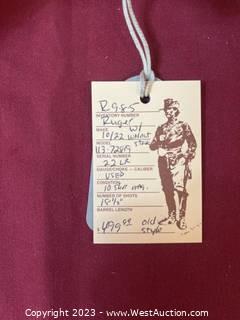 R985
INVENTORY NUMBER
Ruger
MAKE
10/22 W/ walnut stock
MODEL
113-72819
SERIAL NUMBER
22 LR
GAUGE/CHOKE — CALIBER
USED
CONDITION
10 shot mag.
NUMBER OF SHOTS
18 1/2"
BARREL LENGTH
$499.00 old style
Copyright 2023 - www.WestAuction.com